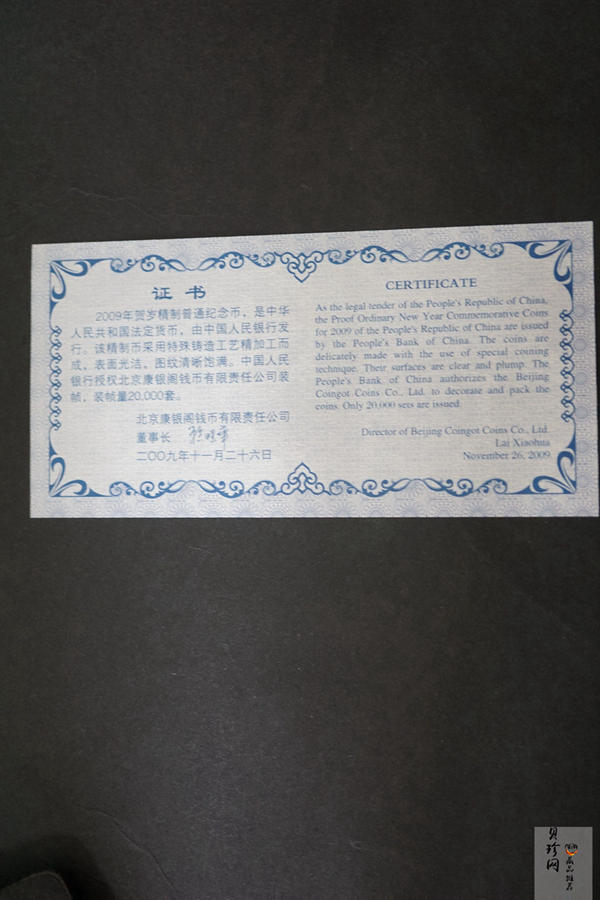 证书
2009年贺岁精制普通纪念币，是中华
人民共和国法定货币，由中国人民银行发
行。该精制币采用特殊铸造工艺精加工而
成，表面光洁，图纹清晰饱满。中国人民
银行授权北京康银阁钱币有限责任公司装
帧，装帧量20,000套。
北京康银阁钱币有限责任公司
董事长
二〇〇九年十一月二十六日
CERTIFICATE
As the legal tender of the People's Republic of China,
the Proof Ordinary New Year Commemorative Coins
for 2009 of the People's Republic of China are issued
by the People's Bank of China. The coins are
delicately made with the use of special coining
technique. Their surfaces are clear and plump. The
People's Bank of China authorizes the Beijing
Coingot Coins Co., Ltd. to decorate and pack the
coins. Only 20,000 sets are issued.
Director of Beijing Coingot Coins Co., Ltd.
Lai Xiaohua
November 26, 2009
贝珍网
藏品推荐